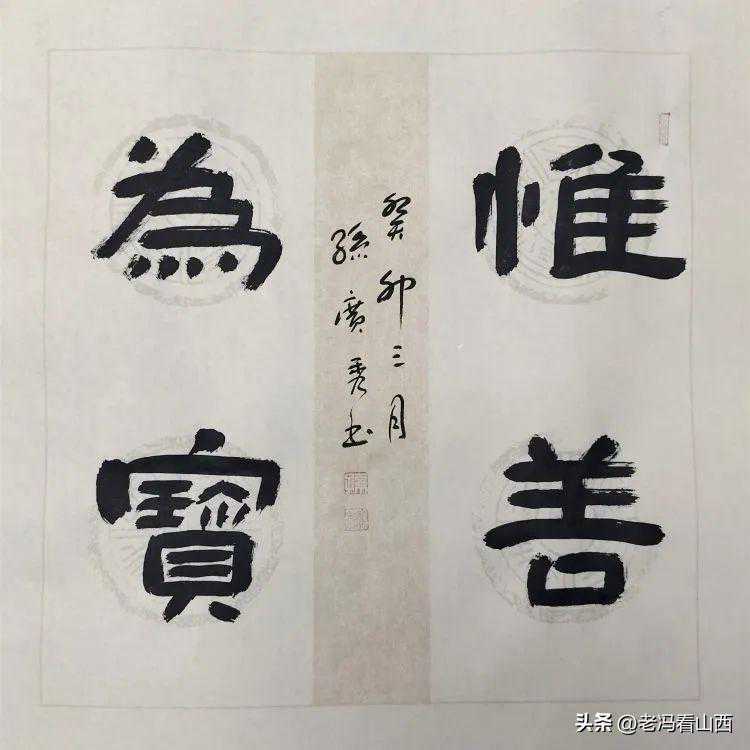 惟善
為寶
癸卯三月
孫廣秀书
头条 @老冯看山西